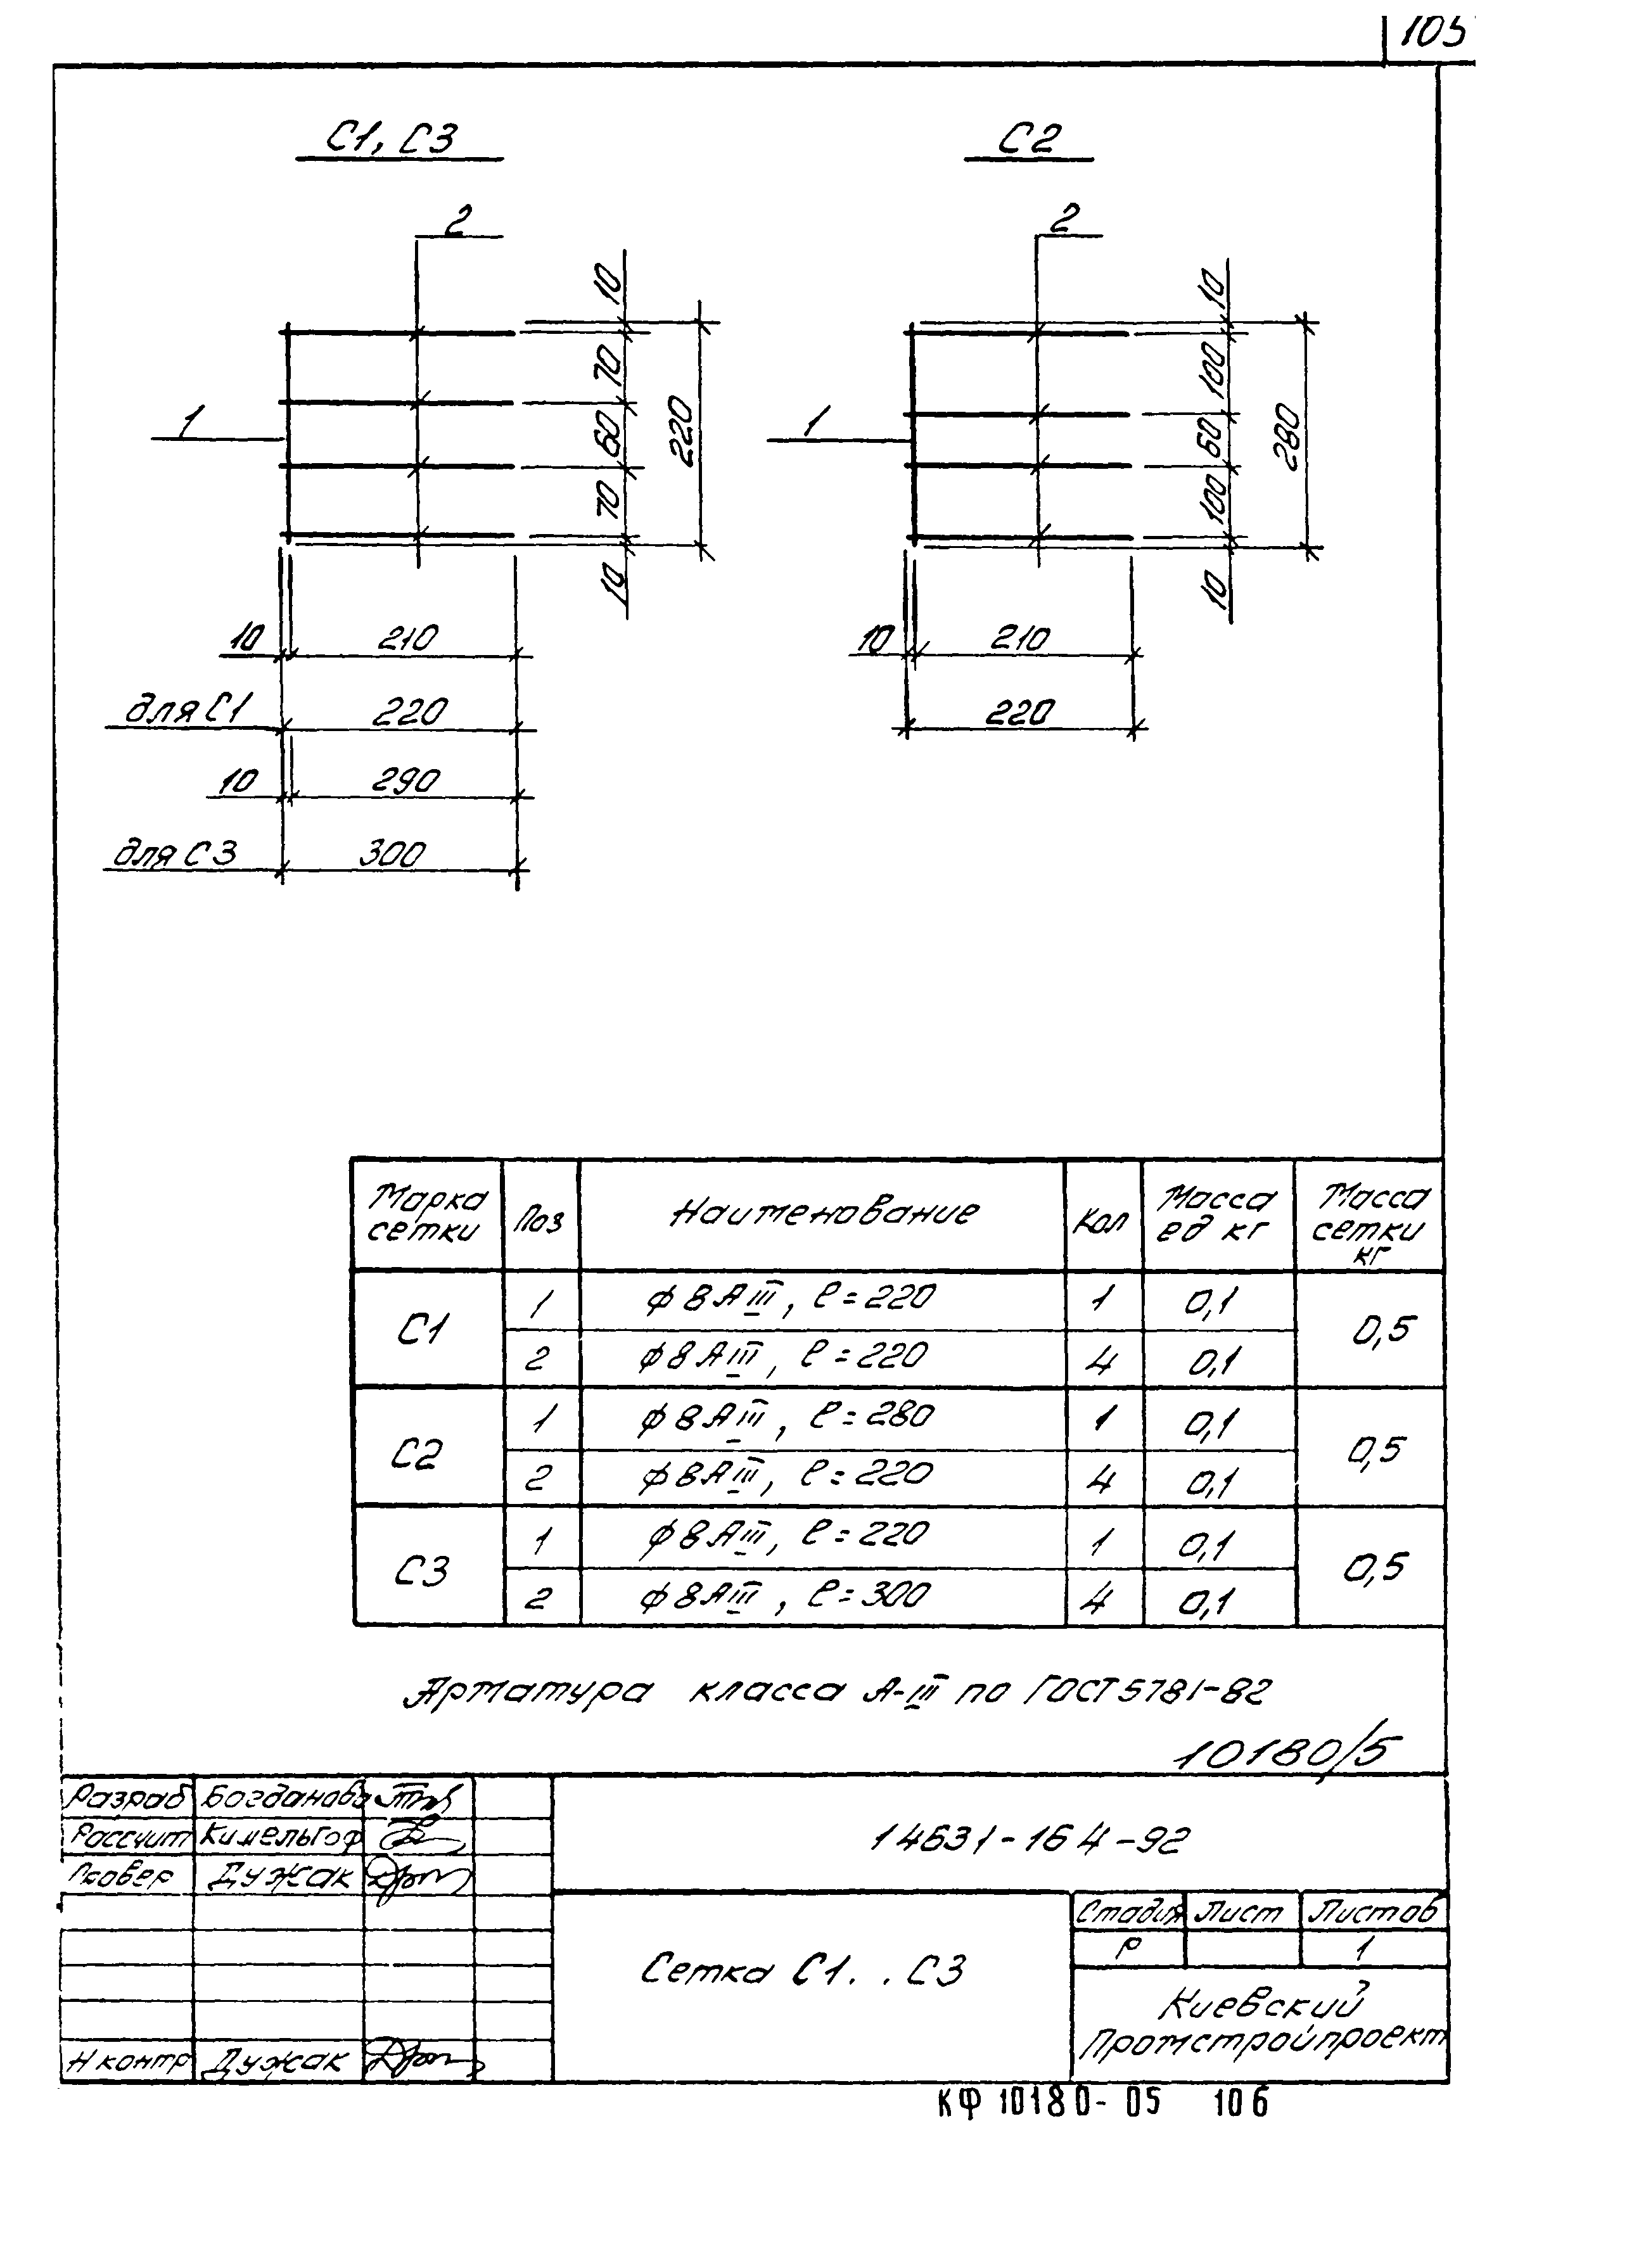 105
С1, С3
С2
2
2
1
1
10
70
60
70
10
220
10
100
60
100
10
280
10 210
для С1 220
10 290
для С3 300
10 210
220
Марка сетки Поз Наименование Кол Масса ед кг Масса сетки кг
С1 1 ф8АIII, ℓ=220 1 0,1 0,5
2 ф8АIII, ℓ=220 4 0,1
С2 1 ф8АIII, ℓ=280 1 0,1 0,5
2 ф8АIII, ℓ=220 4 0,1
С3 1 ф8АIII, ℓ=220 1 0,1 0,5
2 ф8АIII, ℓ=300 4 0,1
Арматура класса А-III по ГОСТ 5781-82
10180/5
Разраб Богданова
Рассчит Кимельгоф
Провер Дужак
Н контр Дужак
14631-164-92
Сетка С1. . С3
Стадия Лист Листов
Р 1
Киевский
Промстройпроект
КФ 10180-05 106